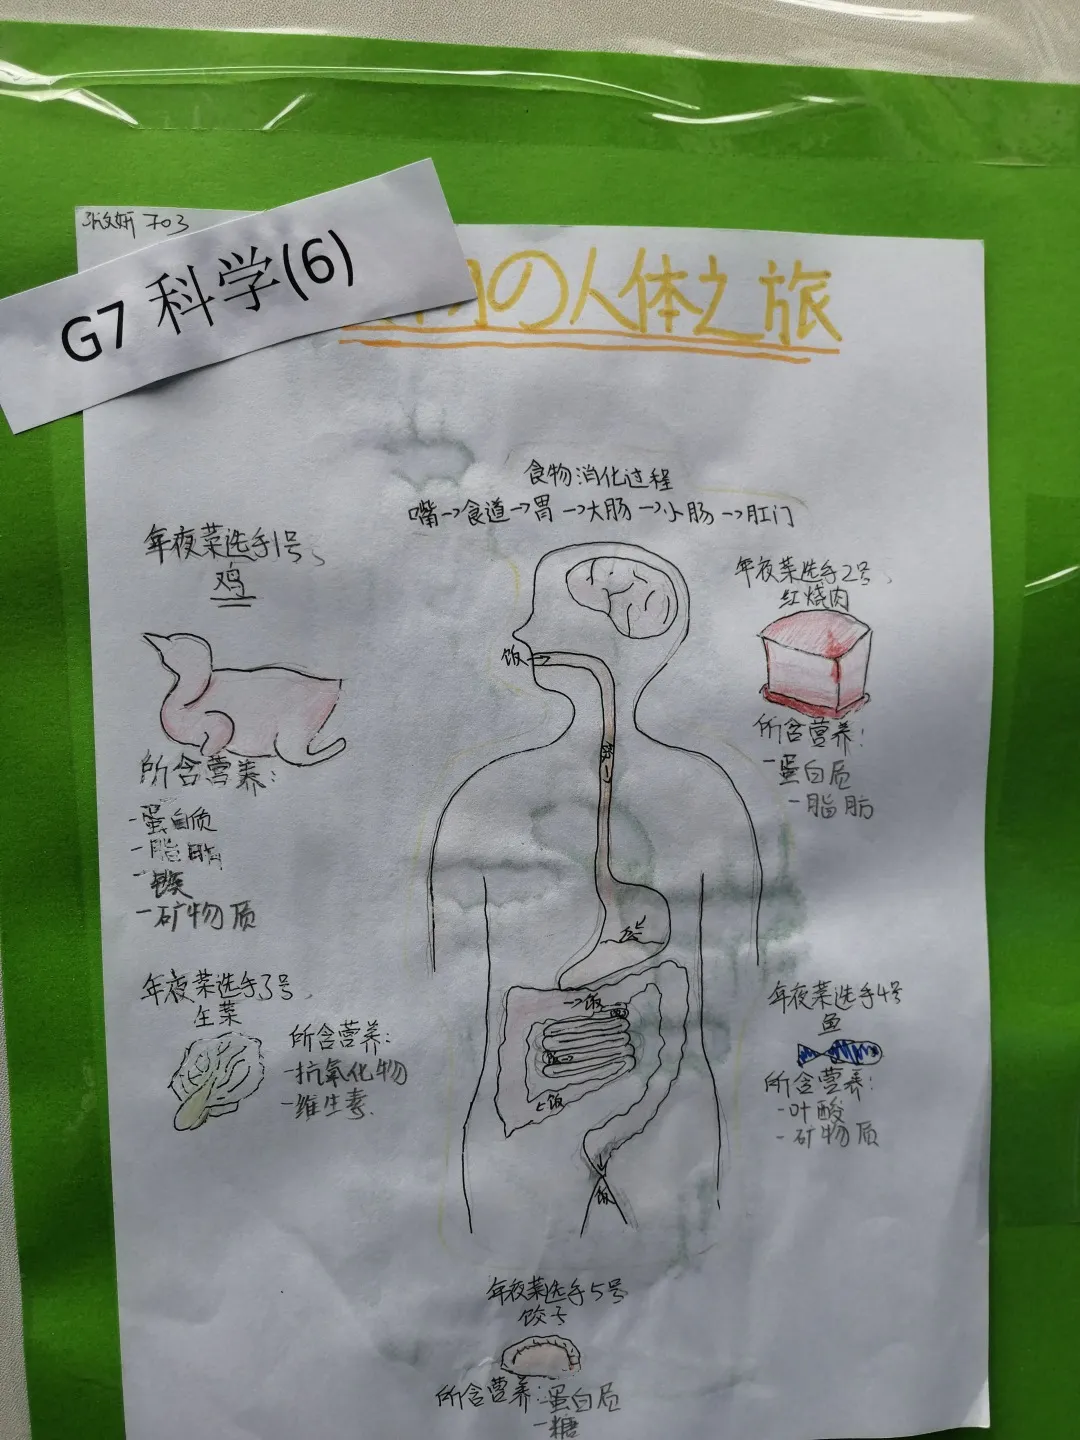 703
G7 科学(6)
の人体之旅
食物消化过程
嘴→食道→胃→大肠→小肠→肛门
年夜菜选手1号、
鸡
所含营养:
-蛋白质
-脂肪
-矿物质
年夜菜选手2号、
红烧肉
所含营养:
-蛋白质
-脂肪
饭→
→饭
饭
饭
年夜菜选手3号、
生菜
所含营养:
-抗氧化物
-维生素.
年夜菜选手4号
鱼
所含营养:
-叶酸
-矿物质
年夜菜选手5号
饺子
所含营养:-蛋白质
-糖